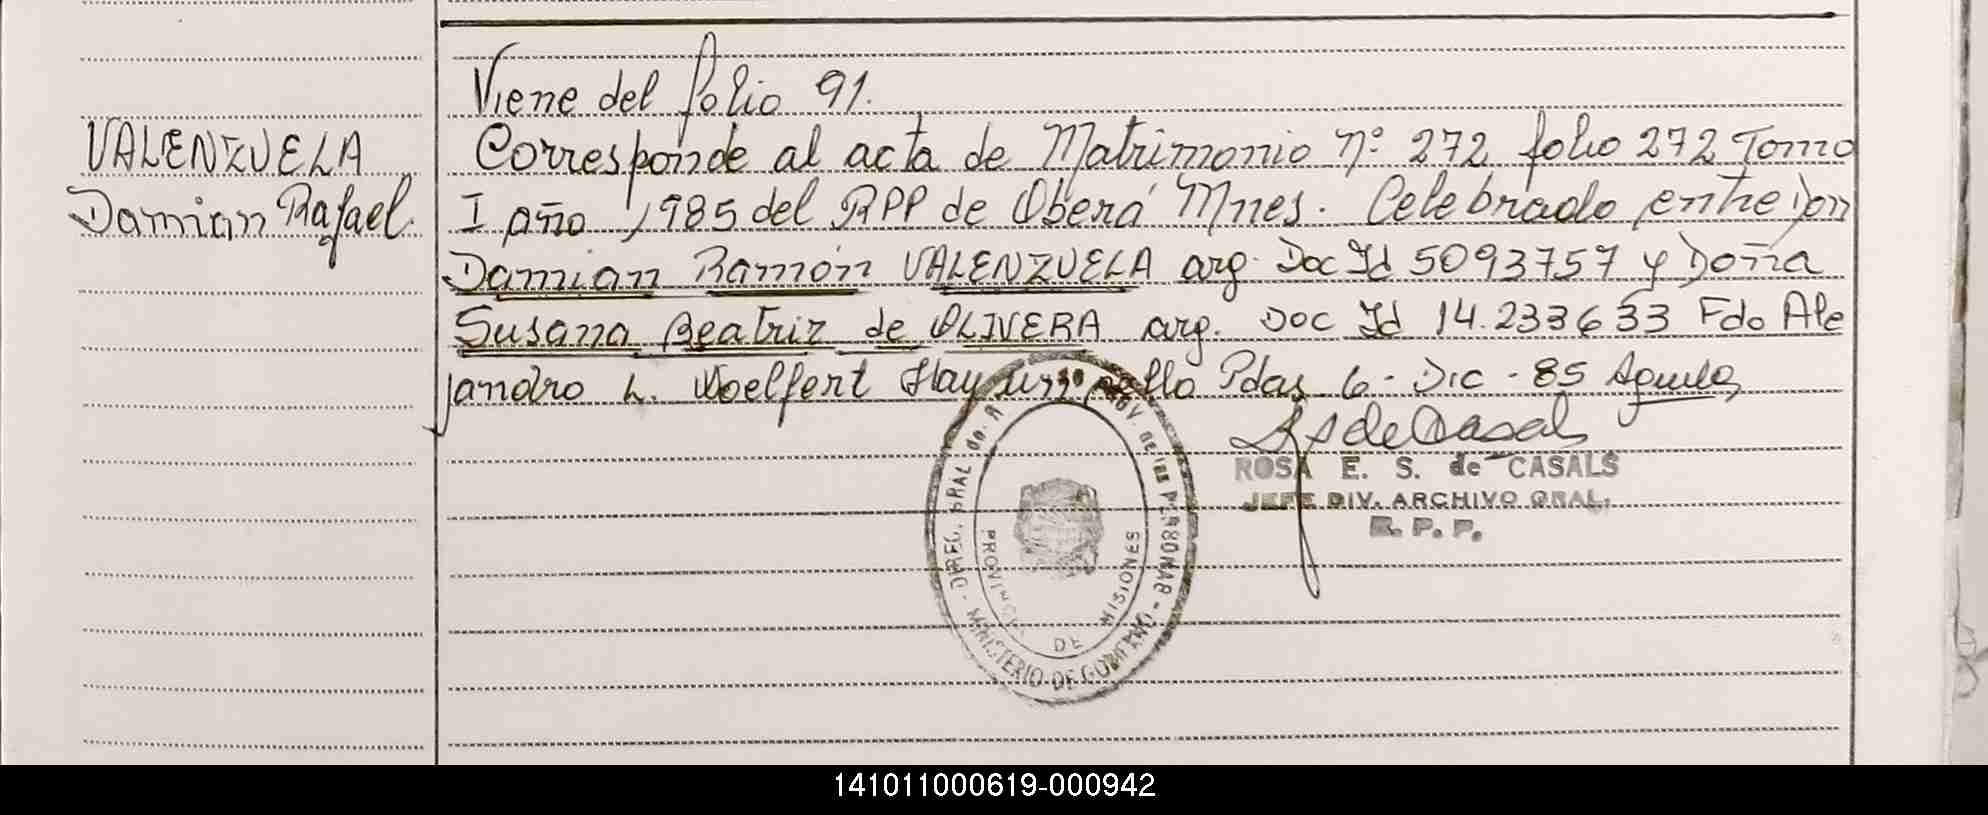 Viene del folio 91.
VALENZUELA
Damian Rafael.
Corresponde al acta de Matrimonio nº 272 folio 272 Tomo
I año 1985 del RPP de Oberá Mnes. Celebrado entre Don
Damian Ramón VALENZUELA arg. Doc Id 5093757 y Doña
Susana Beatriz de OLIVERA arg. Doc Id 14.233633 Fdo Ale
jandro L. Woelfert Hay un sello Pdas 6 - Dic - 85
ROSA E. S. de CASALS
JEFE DIV. ARCHIVO GRAL.
R. P. P.
DIREC. GRAL de PROV. DE las PERSONAS
MINISTERIO DE GOBIERNO
PROVINCIA DE MISIONES
141011000619-000942